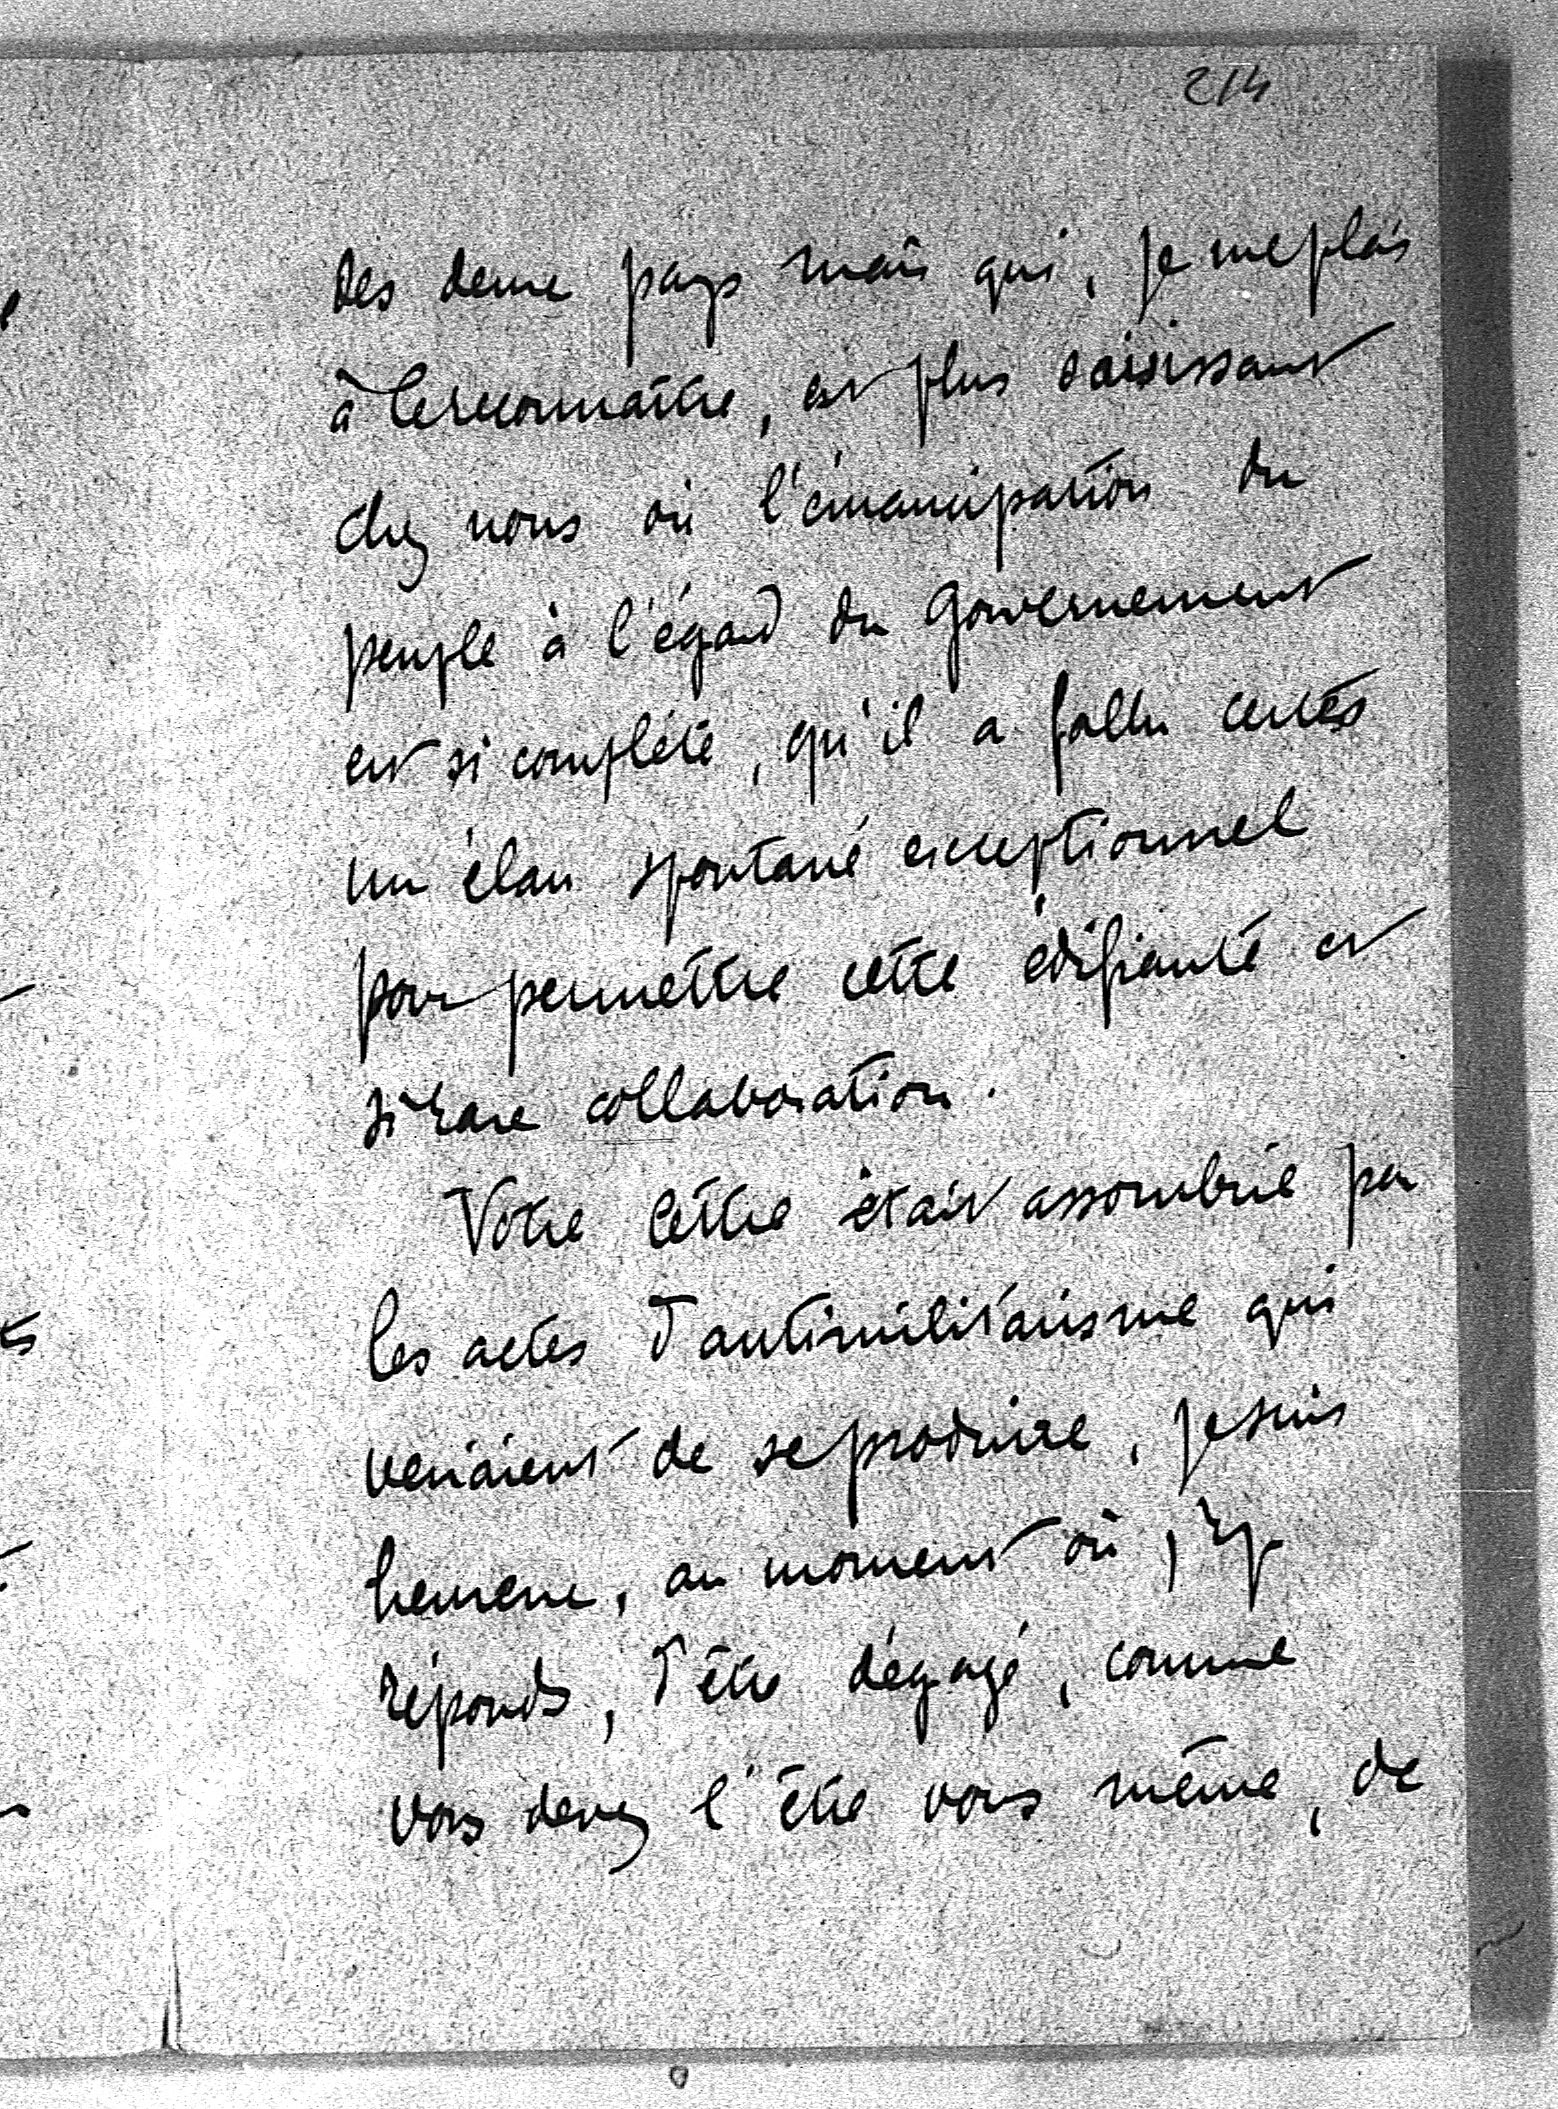 214
des deux pays mais qui, je me plais
à le reconnaître, est plus saisissant
chez nous où l'émancipation du
peuple à l'égard du Gouvernement
est si complète, qu'il a fallu certes
un élan spontané exceptionnel
pour permettre cette édifiante et
si rare collaboration.
Votre lettre était assombrie par
les actes d'antimilitarisme qui
venaient de se produire, je suis
heureux, au moment où j'y
réponds, d'être dégagé, comme
vous devez l'être vous même, de